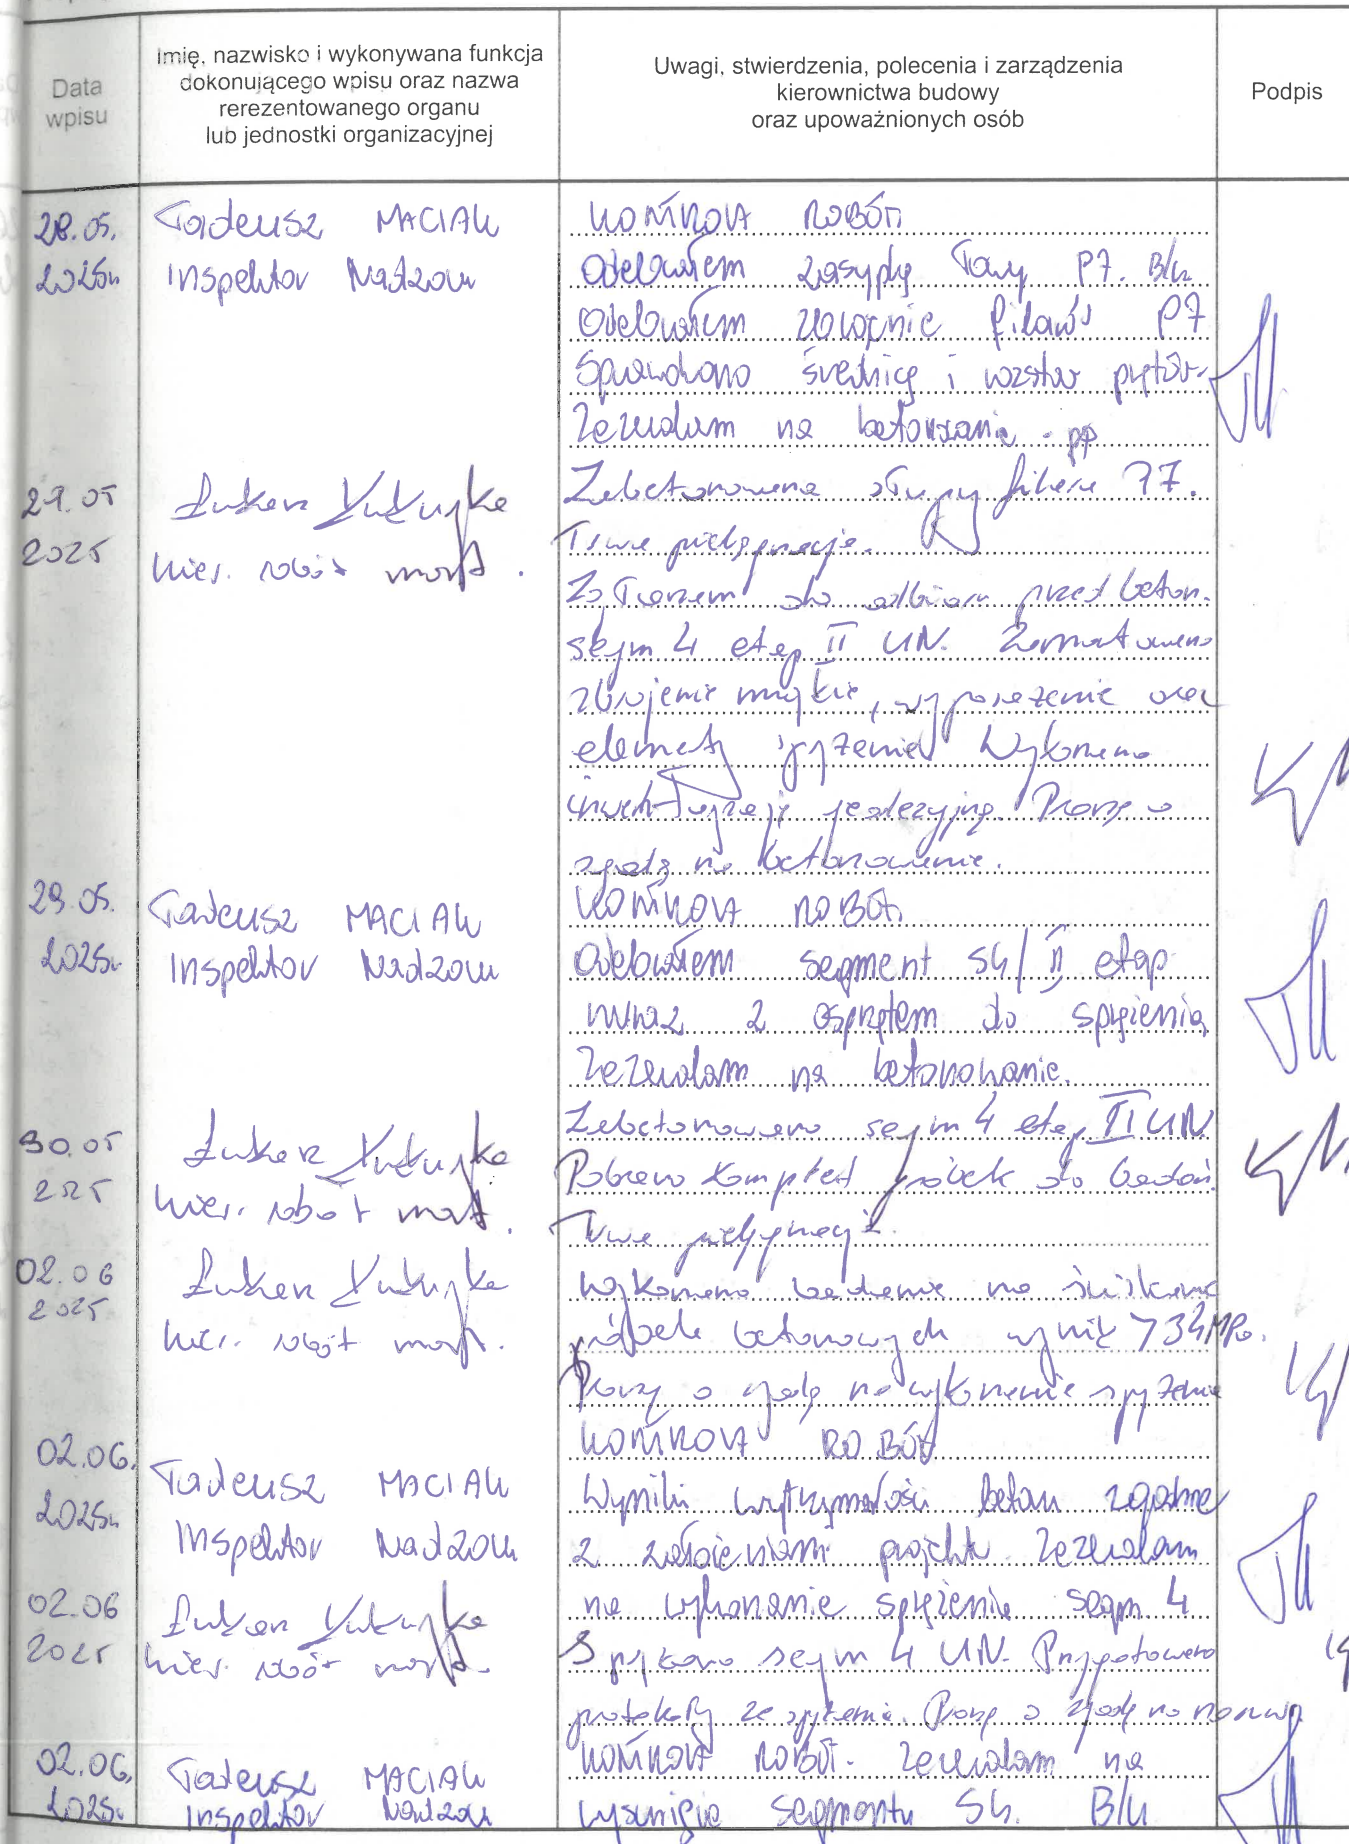 Data
wpisu
Imię, nazwisko i wykonywana funkcja
dokonującego wpisu oraz nazwa
rerezentowanego organu
lub jednostki organizacyjnej
Uwagi, stwierdzenia, polecenia i zarządzenia
kierownictwa budowy
oraz upoważnionych osób
Podpis
28.05.
2025r.
Tadeusz MACIAK
Inspektor Nadzoru
KONTROLA ROBÓT.
Odebrałem zasypkę Ławy P7. B/u
Odebrałem zbrojenie filarów P7
Sprawdzono średnicę i rozstaw prętów.
Zezwalam na betonowanie.
29.05
2025
Łukasz
kier. robót most.
Zabetonowano słupy filara P7.
Trwa pielęgnacja.
Zgłaszam do odbioru przed beton.
segm 4 etap II UN. Zamontowano
zbrojenie miękkie, wyposażenie oraz
elementy sprężenia. Wykonano
inwentaryzację geodezyjną. Proszę o
zgodę na betonowanie.
29.05.
2025r.
Tadeusz MACIAK
Inspektor Nadzoru
KONTROLA ROBÓT.
Odebrałem segment S4/II etap
wraz z osprzętem do sprężenia
Zezwalam na betonowanie.
30.05
2025
Łukasz
kier. robót most.
Zabetonowano segm 4 etap II UN
Pobrano komplet próbek do badań.
Trwa pielęgnacja.
02.06
2025
Łukasz
kier. robót most.
Wykonano badanie na ściskanie
próbek betonowych wynik > 34 MPa.
Proszę o zgodę na wykonanie sprężenia
02.06.
2025r.
Tadeusz MACIAK
Inspektor Nadzoru
KONTROLA ROBÓT
Wyniki wytrzymałości betonu zgodne
z założeniami projektu. Zezwalam
na wykonanie sprężenia segm 4
02.06
2025
Łukasz
kier. robót most.
Sprężono segm 4 UN. Przygotowano
protokoły ze sprężenia. Proszę o zgodę na
02.06.
2025r.
Tadeusz MACIAK
Inspektor Nadzoru
KONTROLA ROBÓT. Zezwalam na
wysunięcie segmentu S4. B/u